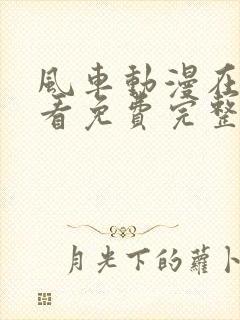 風車動漫在
看免費完整
月光下的蘿卜